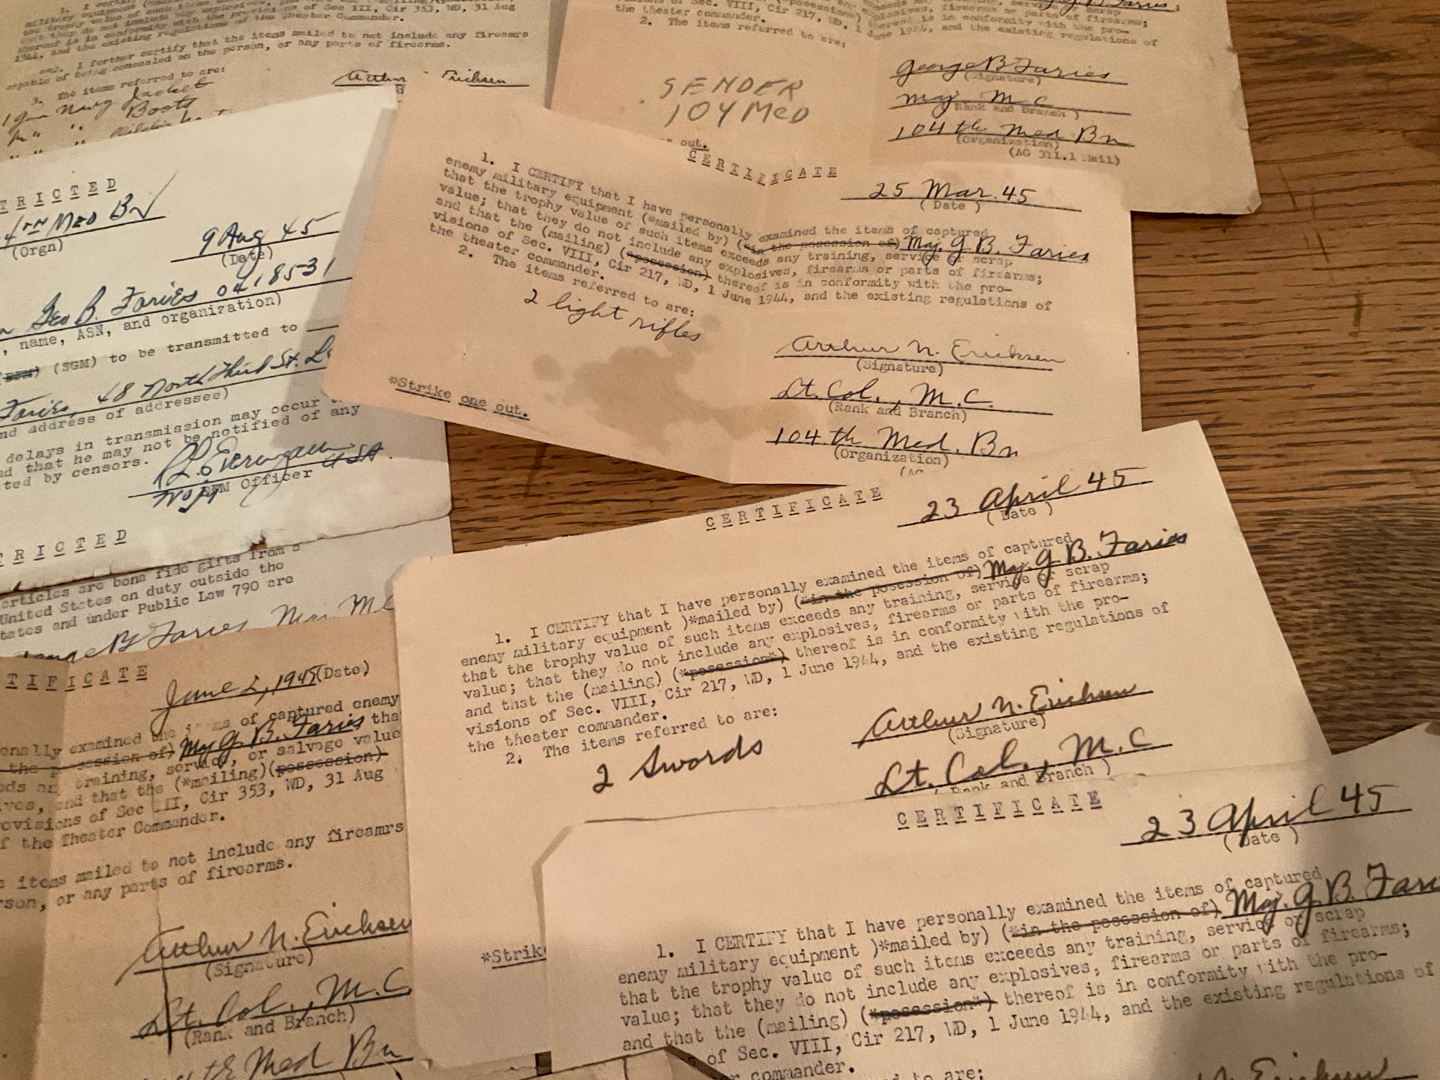 1. I certify
353, WD, 31 Aug
1944, and the existing regulations of the Theater Commander.
I further certify that the items mailed to not include any firearms
capable of being concealed on the person, or any parts of firearms.
3. The items referred to are:
Navy Jacket
Boots
Arthur Ericksen
Sec. VIII, Cir 217, WD, 1 June 1944, and the existing regulations of
the theater commander.
2. The items referred to are;
SENDER
104 Med
George B Faries
(Signature)
Maj M C
(Rank and Branch)
104 th Med Bn
(Organization)
(AG 311.1 Mail)
out.
TRICTED
4TH MED BN
(Orgn)
9 Aug 45
(Date)
Geo B. Faries 0418531
, name, ASN, and organization)
(SGM) to be transmitted to
Faries, 48 North Third St.
nd address of addressee)
delays in transmission may occur
d that he may not be notified of any
ted by censors.
Officer
TRICTED
articles are bona fide gifts from a
United States on duty outside the
tates and under Public Law 790 are
B Faries Maj M C
CERTIFICATE
25 Mar. 45
(Date)
1. I CERTIFY that I have personally examined the items of captured
enemy military equipment (*mailed by) (*in the posession of) Maj. G. B. Faries
that the trophy value of such items exceeds any training, service or scrap
value; that they do not include any explosives, firearms or parts of firearms;
and that the (mailing) (*posession) thereof is in conformity with the pro-
visions of Sec. VIII, Cir 217, WD, 1 June 1944, and the existing regulations of
the theater commander.
2. The items referred to are:
2 light rifles
Arthur N. Ericksen
(Signature)
Lt. Col., M.C.
(Rank and Branch)
104 th Med. Bn
(Organization)
(AG
*Strike one out.
CERTIFICATE
23 April 45
(Date)
1. I CERTIFY that I have personally examined the items of captured
enemy military equipment )*mailed by) (*in the posession of) Maj. G. B. Faries
that the trophy value of such items exceeds any training, service or scrap
value; that they do not include any explosives, firearms or parts of firearms;
and that the (mailing) (*posession*) thereof is in conformity with the pro-
visions of Sec. VIII, Cir 217, WD, 1 June 1944, and the existing regulations of
the theater commander.
2. The items referred to are:
2 Swords
Arthur N. Ericksen
(Signature)
Lt. Col., M.C
(Rank and Branch)
*Strik
TIFICATE
June 2, 1945 (Date)
onally examined the items of captured enemy
the possession of) Maj G. B. Faries tha
training, service, or salvage value
ves, and that the (*mailing)(possession)
rovisions of Sec III, Cir 353, WD, 31 Aug
f the Theater Commander.
items mailed to not include any fireamrs
rson, or any parts of firearms.
Arthur N. Ericksen
(Signature)
Lt. Col., M.C.
(Rank and Branch)
th Med Bn
CERTIFICATE
23 April 45
(Date)
1. I CERTIFY that I have personally examined the items of captured
enemy military equipment )*mailed by) (*in the posession of) Maj. G. B. Fari
that the trophy value of such items exceeds any training, service or scrap
value; that they do not include any explosives, firearms or parts of firearms;
and that the (mailing) (*posession*) thereof is in conformity with the pro-
s of Sec. VIII, Cir 217, WD, 1 June 1944, and the existing regulations of
commander.
red to are:
Ericksen